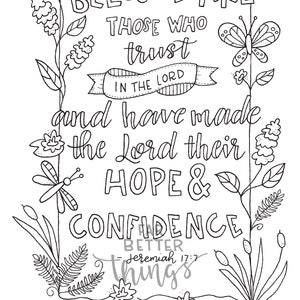 BLESSED ARE
THOSE WHO
trust
IN THE LORD
and have made
the Lord their
HOPE &
CONFIDENCE
FAR
BETTER
- Jeremiah 17:7
Things